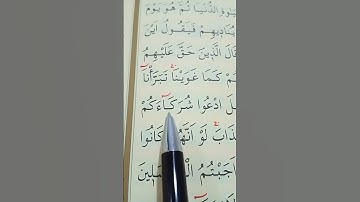 ـيٰوةِ الدُّنْيَا ثُمَّ هُوَ يَوْمَ
يُنَادِيهِمْ فَيَقُولُ اَيْنَ
قَالَ الَّذِينَ حَقَّ عَلَيْهِمُ
ـهُمْ كَمَا غَوَيْنَا تَبَرَّأْنَا
ـلَ ادْعُوا شُرَكَاءَكُمْ
ـذَابَ لَوْ اَنَّهُمْ كَانُوا
اَجَبْتُمُ الْمُرْسَلِينَ